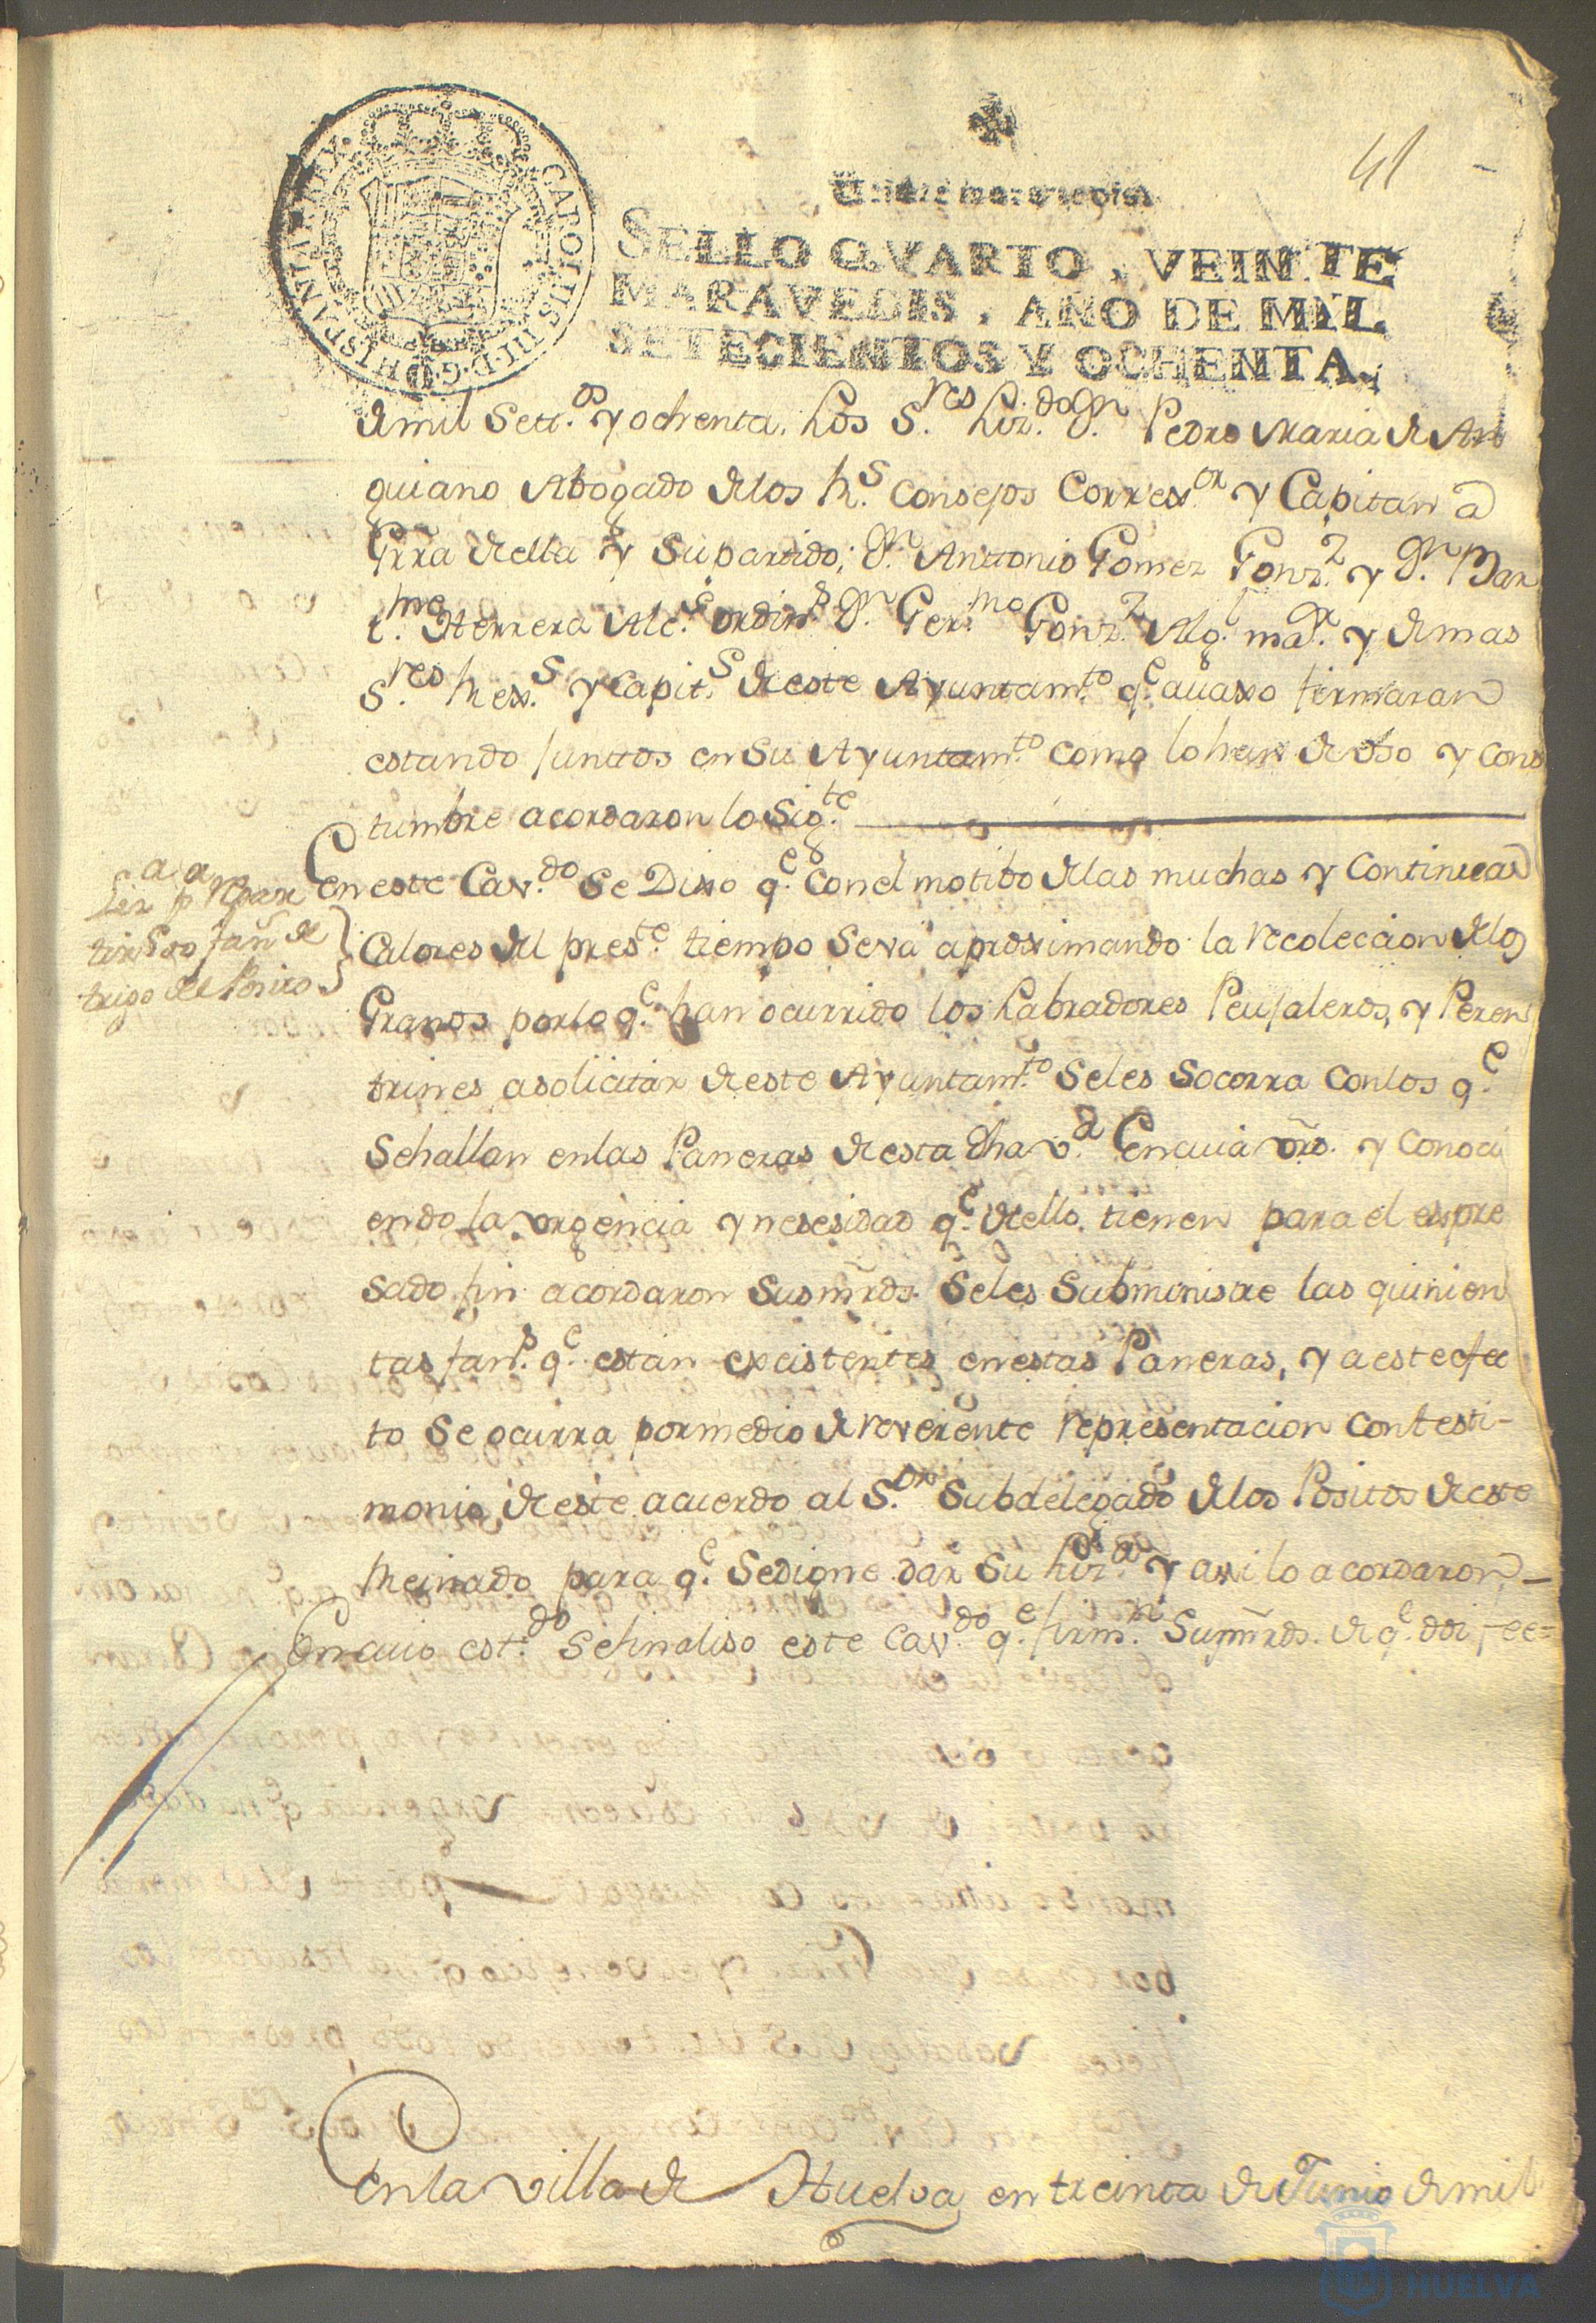 41
CAROLUS III D G HISPANIAR REX
SELLO QVARTO, VEINTE
MARAVEDIS, AÑO DE MIL
SETECIENTOS Y OCHENTA.
de mil Sett.os y ochenta. Los S.res Liz.do D.n Pedro Maria de An
guiano Abogado de los R.s Consejos Correx.or y Capitan a
Grra de ella y su partido; D.n Anttonio Gomez Gonz.z y D.n Bar
t.me Herrera Alc.s ordin.s D.n Ger.mo Gonz.z Alg.l ma.or y demas
S.res Rex.s y Capit.s de este Ayuntam.to q.e auaxo firmaran
estando Junttos en su Ayuntam.to como lo han de Vso y Cons
tumbre acordaron lo Sig.te
Liz.a p.a Repar
tir 500 fan.s de
trigo del Posito
En este Cav.do Se Dixo q.e con el motibo de las muchas y Continuas
Calores del pres.te tiempo Se va aproximando la recoleccion de los
Granos por lo q.e han ocurrido los Labradores Peujaleros, y Peren
trines a solicitar de este Ayuntam.to Seles Socorra con los q.e
Se hallan en las Paneras de esta dha v.a En cuia vto. y Conoci
endo la vrgencia y nesesidad q.e de ello tienen para el expre
sado fin acordaron Sus mrds. Seles Subministre las quinien
tas fan.s q.e estan existentes en estas Paneras, y a este efec
to Se ocurra por medio de reverente representacion con testi-
monio de este acuerdo al S.or Subdelegado de los Positos de este
Reinado para q.e Se digne dar Su Liz.a y assi lo acordaron
En cuio est.do Se finaliso este Cav.do q.e firm.n Sus mrds. de q.e doi fee=
En la villa de Huelva en treinta de Junio de mil
HUELVA